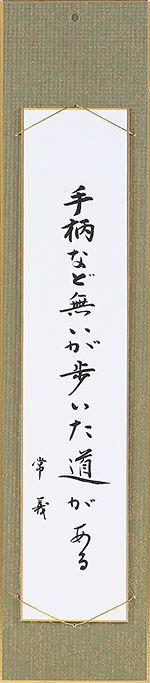 手柄など無いが歩いた道がある
常義